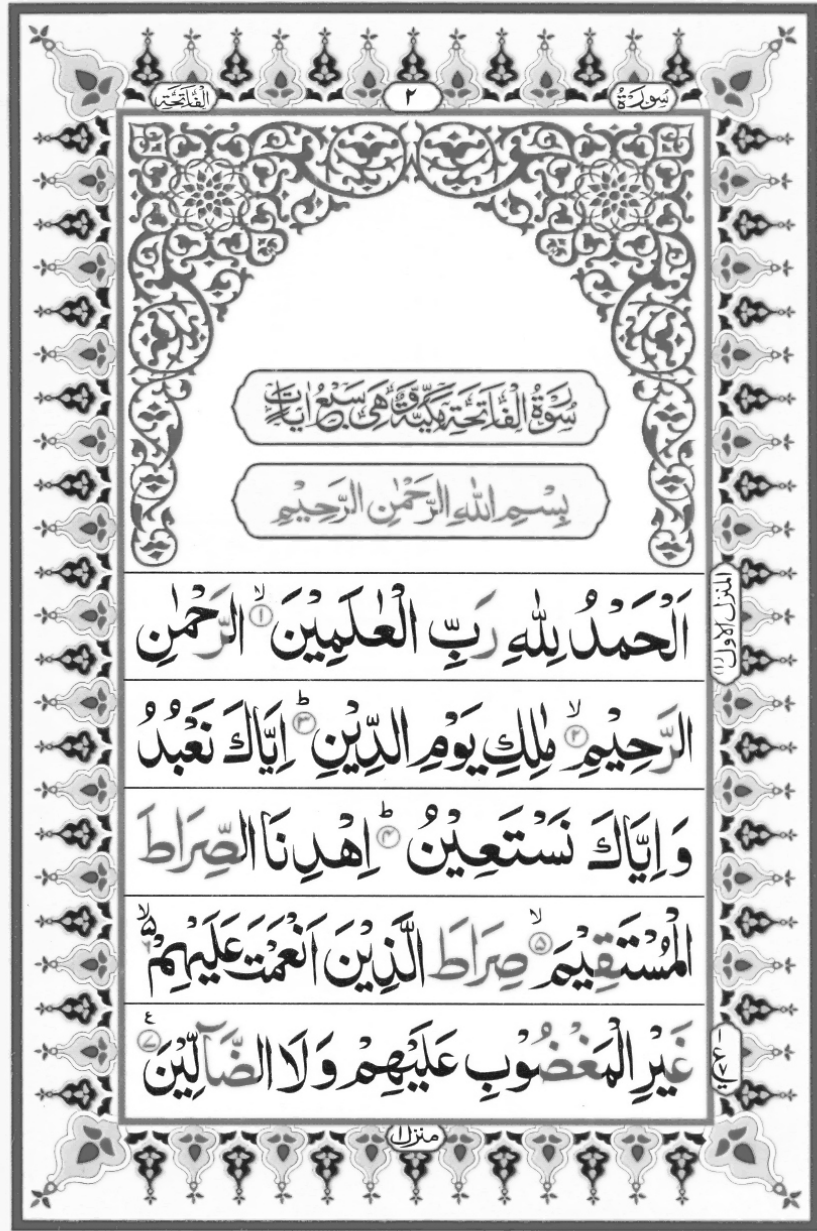 سُوْرَةُ
٢
الْفَاتِحَةِ
سُوْرَةُ الْفَاتِحَةِ مَكِّيَّةٌ وَّهِیَ سَبْعُ اٰیَاتٍ
بِسْمِ اللّٰهِ الرَّحْمٰنِ الرَّحِیْمِ
اَلْحَمْدُ لِلّٰهِ رَبِّ الْعٰلَمِیْنَ ۙ﴿۱﴾ الرَّحْمٰنِ
الرَّحِیْمِ ۙ﴿۲﴾ مٰلِكِ یَوْمِ الدِّیْنِ ؕ﴿۳﴾ اِیَّاكَ نَعْبُدُ
وَ اِیَّاكَ نَسْتَعِیْنُ ؕ﴿۴﴾ اِهْدِنَا الصِّرَاطَ
الْمُسْتَقِیْمَ ۙ﴿۵﴾ صِرَاطَ الَّذِیْنَ اَنْعَمْتَ عَلَیْهِمْ ۙ۵﴿۶﴾
غَیْرِ الْمَغْضُوْبِ عَلَیْهِمْ وَ لَا الضَّآلِّیْنَ ﴿۷﴾ ع
المنزل الاول
منزل ۱